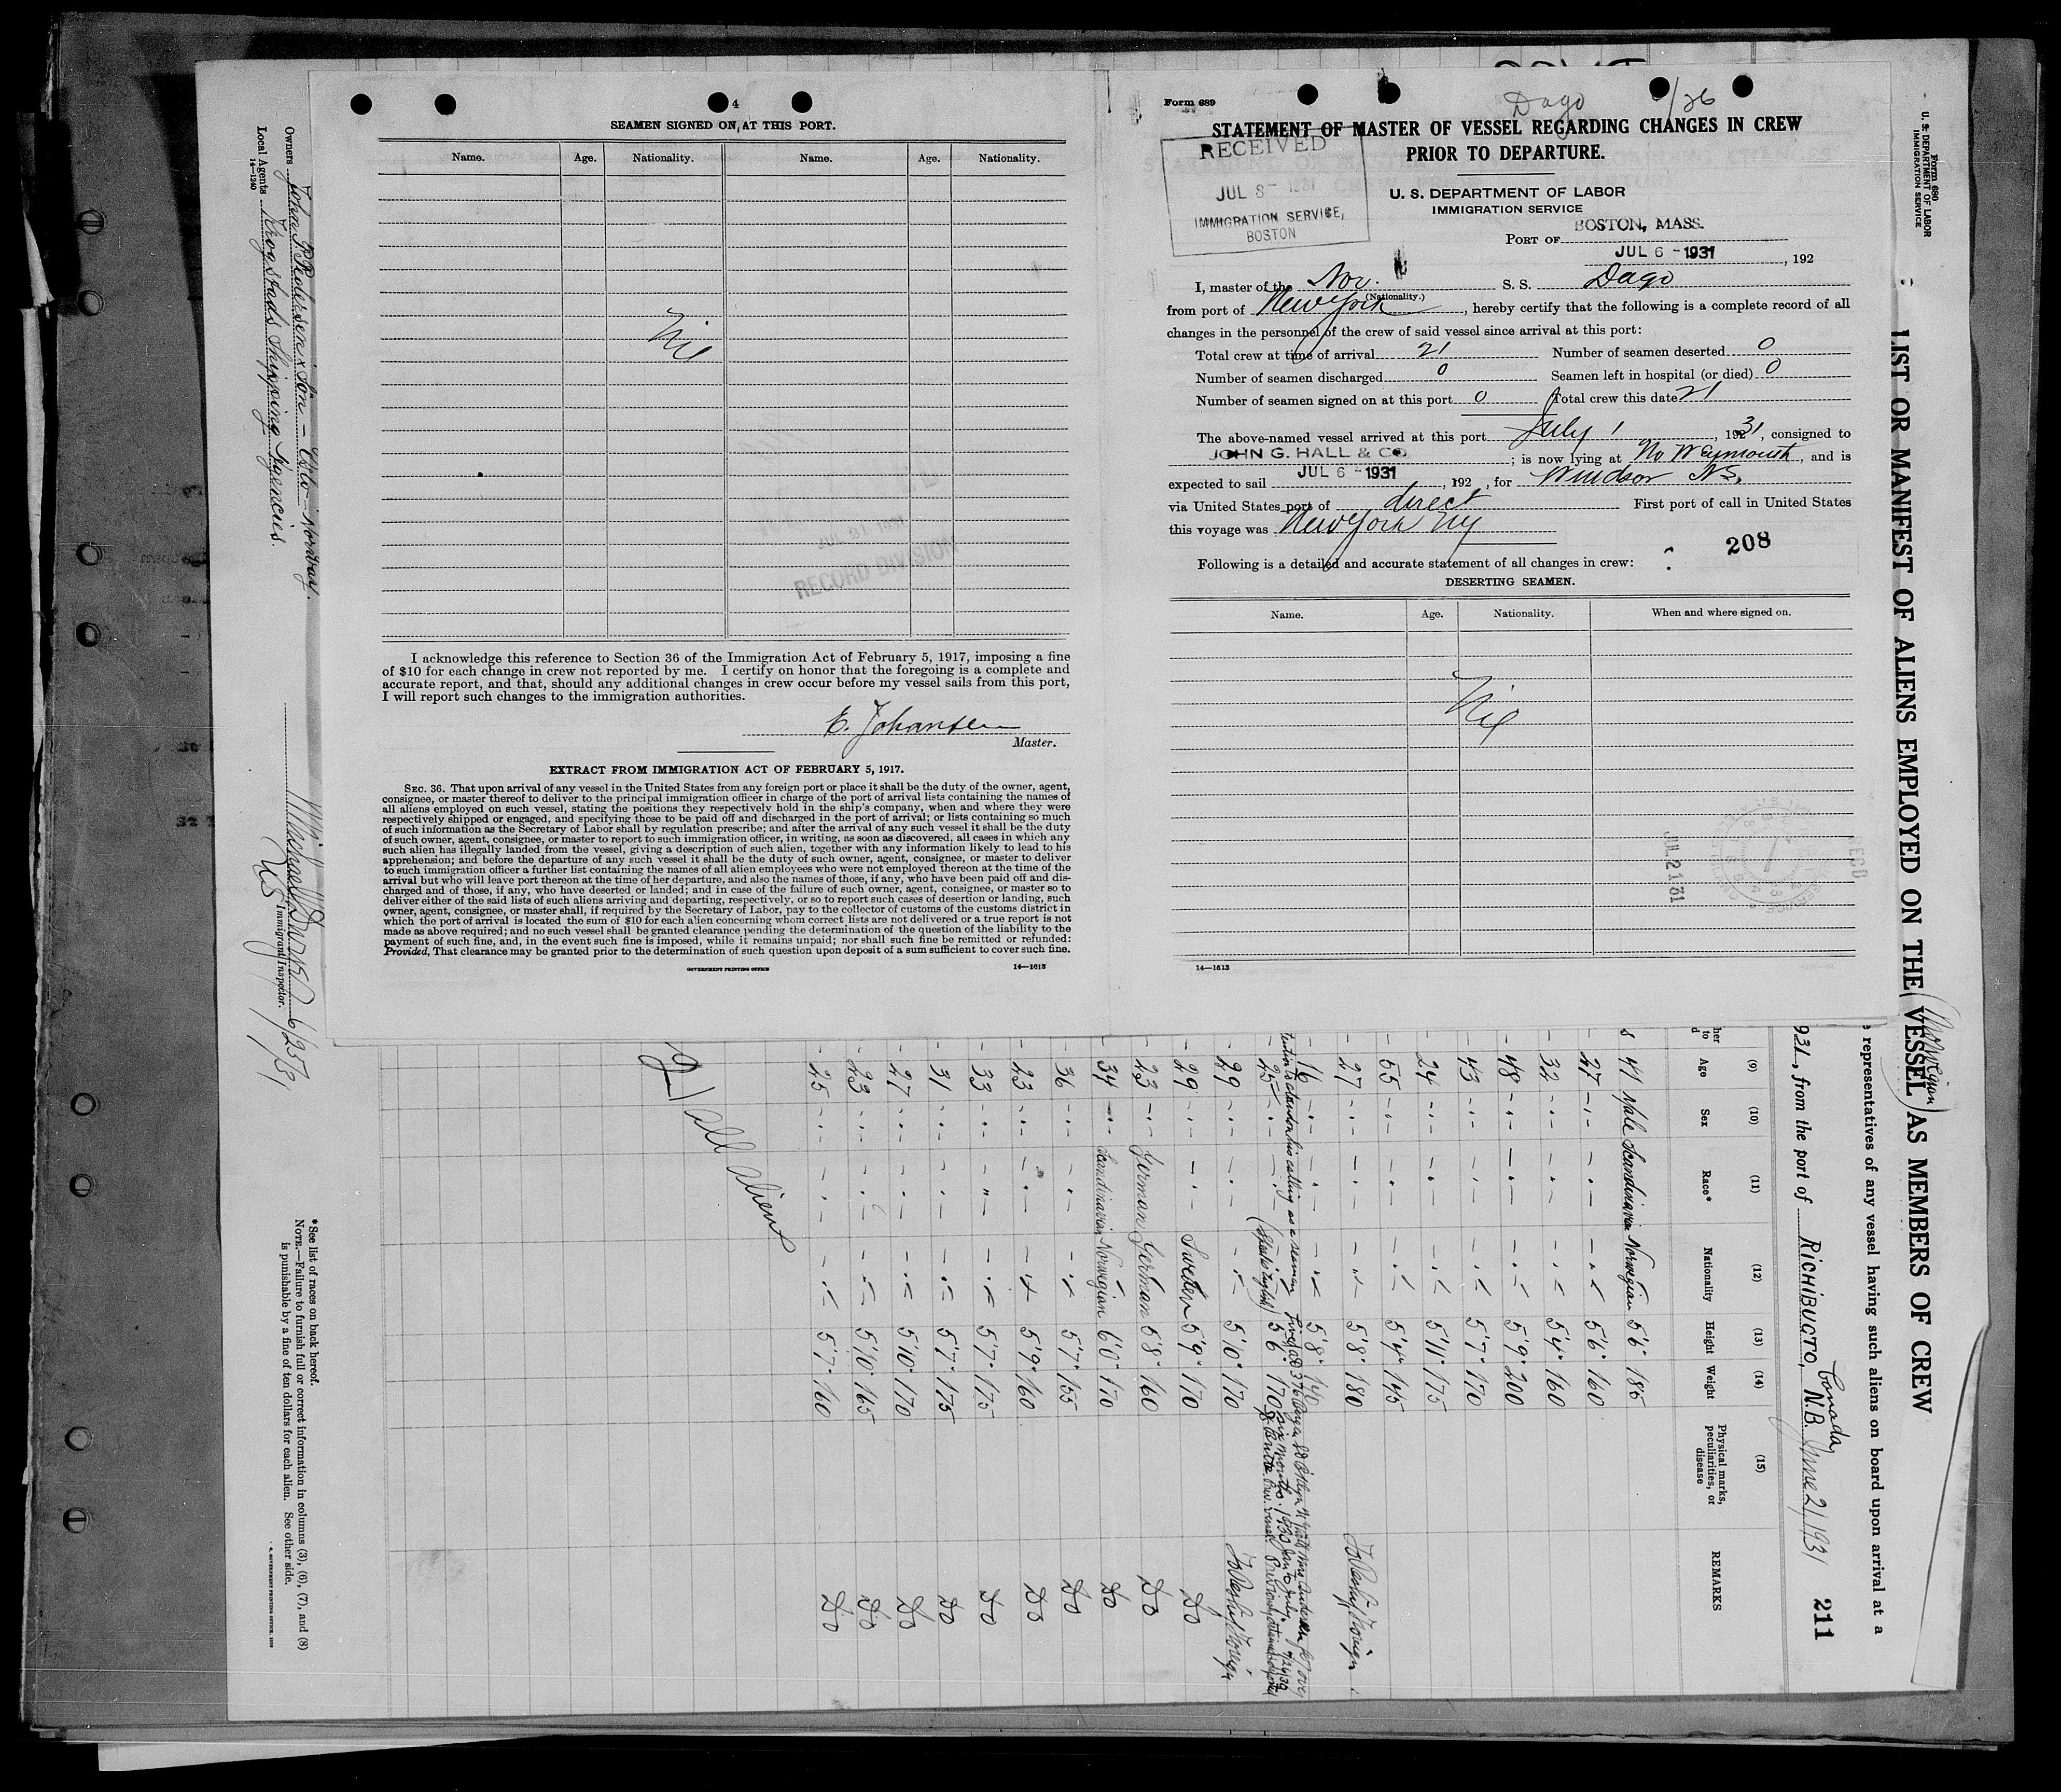 4
SEAMEN SIGNED ON AT THIS PORT.
Name. Age. Nationality. Name. Age. Nationality.
Nil
JUL 21 1931
RECORD DIVISION
I acknowledge this reference to Section 36 of the Immigration Act of February 5, 1917, imposing a fine
of $10 for each change in crew not reported by me. I certify on honor that the foregoing is a complete and
accurate report, and that, should any additional changes in crew occur before my vessel sails from this port,
I will report such changes to the immigration authorities.
E. Johansen
Master.
EXTRACT FROM IMMIGRATION ACT OF FEBRUARY 5, 1917.
SEC. 36. That upon arrival of any vessel in the United States from any foreign port or place it shall be the duty of the owner, agent,
consignee, or master thereof to deliver to the principal immigration officer in charge of the port of arrival lists containing the names of
all aliens employed on such vessel, stating the positions they respectively hold in the ship's company, when and where they were
respectively shipped or engaged, and specifying those to be paid off and discharged in the port of arrival; or lists containing so much
of such information as the Secretary of Labor shall by regulation prescribe; and after the arrival of any such vessel it shall be the duty
of such owner, agent, consignee, or master to report to such immigration officer, in writing, as soon as discovered, all cases in which any
such alien has illegally landed from the vessel, giving a description of such alien, together with any information likely to lead to his
apprehension; and before the departure of any such vessel it shall be the duty of such owner, agent, consignee, or master to deliver
to such immigration officer a further list containing the names of all alien employees who were not employed thereon at the time of the
arrival but who will leave port thereon at the time of her departure, and also the names of those, if any, who have been paid off and dis-
charged and of those, if any, who have deserted or landed; and in case of the failure of such owner, agent, consignee, or master so to
deliver either of the said lists of such aliens arriving and departing, respectively, or so to report such cases of desertion or landing, such
owner, agent, consignee, or master shall, if required by the Secretary of Labor, pay to the collector of customs of the customs district in
which the port of arrival is located the sum of $10 for each alien concerning whom correct lists are not delivered or a true report is not
made as above required; and no such vessel shall be granted clearance pending the determination of the question of the liability to the
payment of such fine, and, in the event such fine is imposed, while it remains unpaid; nor shall such fine be remitted or refunded:
Provided, That clearance may be granted prior to the determination of such question upon deposit of a sum sufficient to cover such fine.
GOVERNMENT PRINTING OFFICE 14—1613
Form 689
Dago /26
STATEMENT OF MASTER OF VESSEL REGARDING CHANGES IN CREW
PRIOR TO DEPARTURE.
RECEIVED
JUL 8 - 1931
IMMIGRATION SERVICE,
BOSTON
U. S. DEPARTMENT OF LABOR
IMMIGRATION SERVICE
PORT OF BOSTON, MASS.
JUL 6 - 1931, 192
I, master of the Nor. S. S. Dago
(Nationality.)
from port of New York, hereby certify that the following is a complete record of all
changes in the personnel of the crew of said vessel since arrival at this port:
Total crew at time of arrival 21 Number of seamen deserted 0
Number of seamen discharged 0 Seamen left in hospital (or died) 0
Number of seamen signed on at this port 0 Total crew this date 21
The above-named vessel arrived at this port July 1, 1931, consigned to
JOHN G. HALL & CO.; is now lying at No Weymouth, and is
expected to sail JUL 6 - 1931, 192 , for Windsor NS.
via United States port of direct First port of call in United States
this voyage was New York NY
208
Following is a detailed and accurate statement of all changes in crew:
DESERTING SEAMEN.
Name. Age. Nationality. When and where signed on.
Nil
14—1613
Form 680
U. S. DEPARTMENT OF LABOR
IMMIGRATION SERVICE
LIST OR MANIFEST OF ALIENS EMPLOYED ON THE VESSEL AS MEMBERS OF CREW
(Norwegian)
representatives of any vessel having such aliens on board upon arrival at a
931, from the port of RICHIBUCTO, N.B. Canada June 21 1931 211
(9) (10) (11) (12) (13) (14) (15)
Age Sex Race* Nationality Height Weight Physical marks, peculiarities, or disease REMARKS
41 Male Scandinavian Norwegian 5'6" 185
27 5'6" 160
32 5'4" 160
48 5'9" 200
43 5'7" 170
24 5'11" 175
55 5'4" 145
27 5'8" 180 To Reship Foreign
16 5'8" 140
25 (Speaks English) 5'6" 170
29 5'10" 170 To Reship Foreign
29 Sweden 5'9" 170 Do
23 German German 5'8" 160 Do
34 Scandinavian Norwegian 6'0" 170 Do
36 5'7" 155 Do
23 5'9" 160 Do
33 5'7" 175 Do
31 5'7" 175 Do
27 5'10" 170 Do
23 5'10" 165 Do
25 5'7" 160 Do
All Aliens
Owners John P. Pedersen & Sön - Oslo - Norway.
Local Agents Trogstads Shipping Agencies.
14—1240
Immigrant Inspector.
*See list of races on back hereof.
NOTE.—Failure to furnish full or correct information in columns (3), (6), (7), and (8)
is punishable by a fine of ten dollars for each alien. See other side.